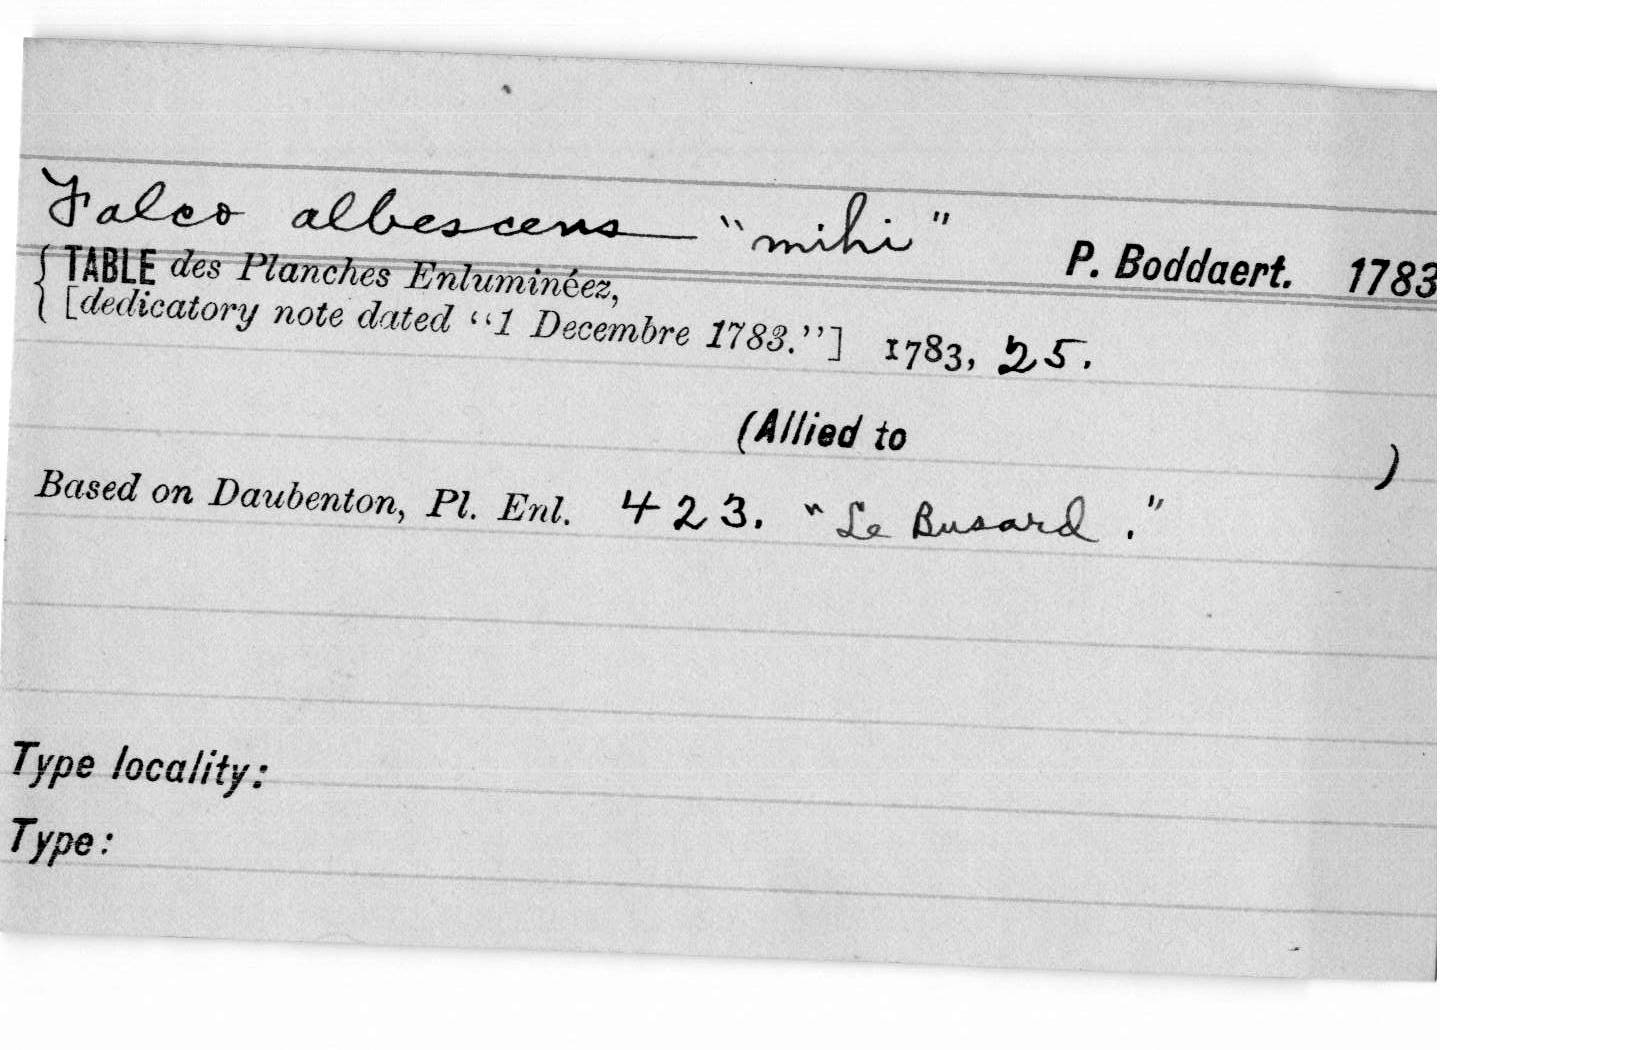 Falco albescens "mihi" P. Boddaert. 1783
TABLE des Planches Enluminéez,
[dedicatory note dated "1 Decembre 1783."] 1783, 25.
(Allied to )
Based on Daubenton, Pl. Enl. 423. "Le Busard."
Type locality:
Type: